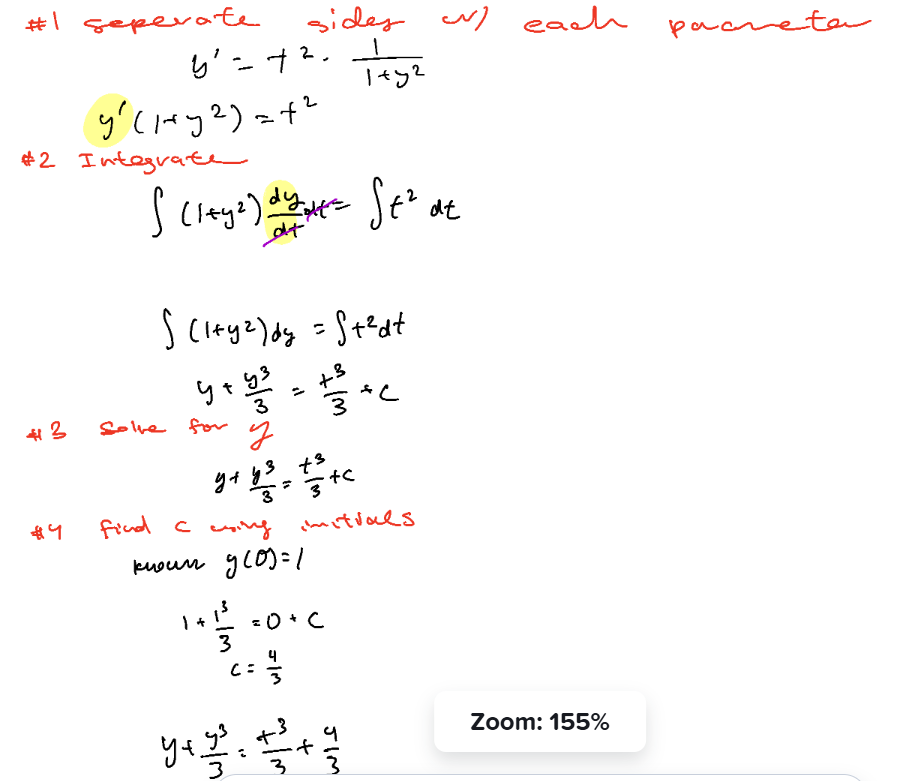 #1 seperate sides w/ each parameter
y' = t² · 1/(1+y²)
y'(1+y²) = t²
#2 Integrate
∫ (1+y²) dy/dt dt = ∫ t² dt
∫ (1+y²) dy = ∫ t² dt
y + y³/3 = t³/3 + C
#3 Solve for y
y + y³/3 = t³/3 + C
#4 find c using initials
known y(0) = 1
1 + 1³/3 = 0 + C
C = 4/3
y + y³/3 = t³/3 + 4/3
Zoom: 155%